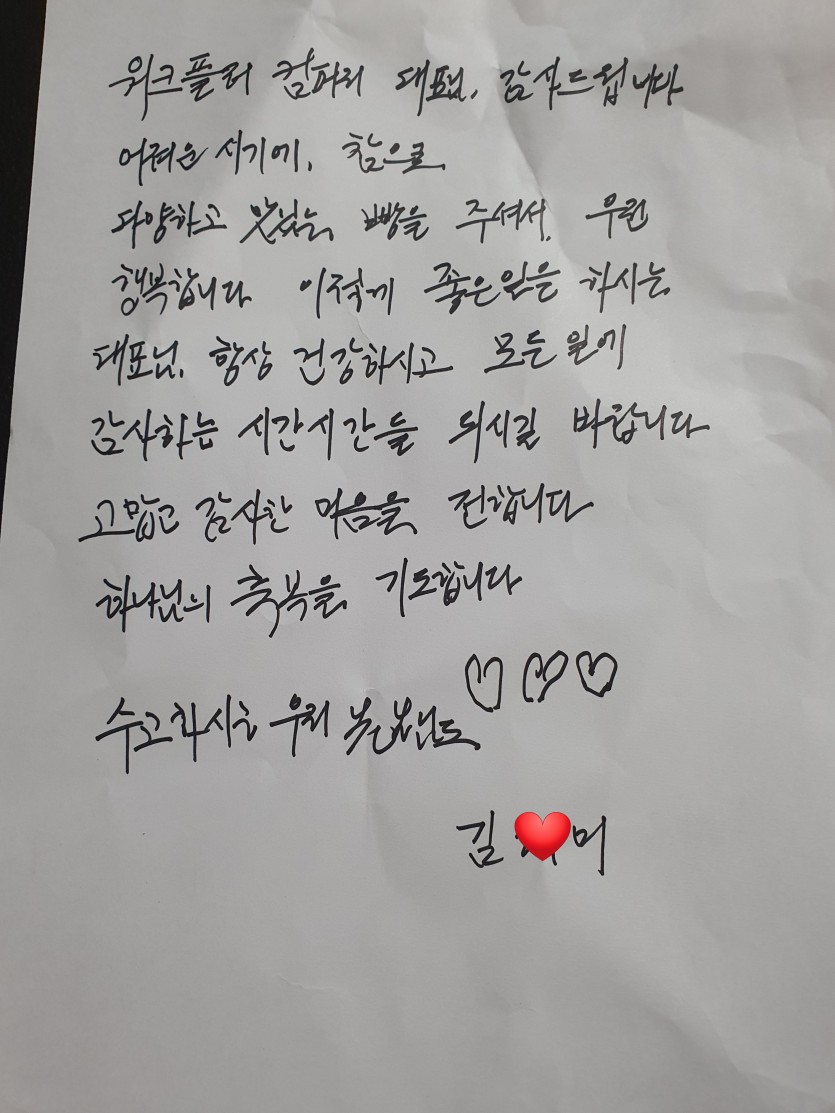 워크플러 컴파러 대표님, 감사드립니다
어려운 시기에, 참으로,
다양하고 맛있는, 빵을 주셔서, 우린
행복합니다 이렇게 좋은일을 하시는,
대표님, 항상 건강하시고 모든일에
감사하는 시간시간들 되시길 바랍니다
고맙고 감사한 마음을, 전합니다
하나님의 축복을, 기도합니다
수고하시는 우리
김 미